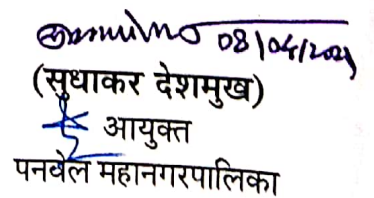 08/04/2021
(सुधाकर देशमुख)
आयुक्त
पनवेल महानगरपालिका